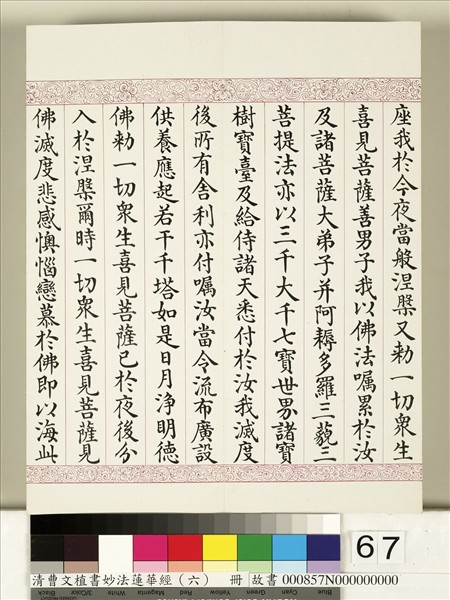 座我於今夜當般涅槃又勑一切衆生
喜見菩薩善男子我以佛法囑累於汝
及諸菩薩大弟子并阿耨多羅三藐三
菩提法亦以三千大千七寶世界諸寶
樹寶臺及給侍諸天悉付於汝我滅度
後所有舍利亦付囑汝當令流布廣設
供養應起若干千塔如是日月淨明德
佛勑一切衆生喜見菩薩已於夜後分
入於涅槃爾時一切衆生喜見菩薩見
佛滅度悲感懊惱戀慕於佛即以海此
67
清曹文植書妙法蓮華經（六） 冊 故書 000857N000000000